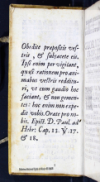 Obedite præpositis ve-
stris, & subjacete eis.
Ipsi enim pervigilant,
quasi rationem pro ani-
mabus vestris redditu-
ri, ut cum gaudio hoc
faciant, & non gemen-
tes: hoc enim non expe-
dit vobis. Orate pro no-
bis. Epist. D. Paul. ad
Hebr: Cap. 13. V. 17.
& 18.